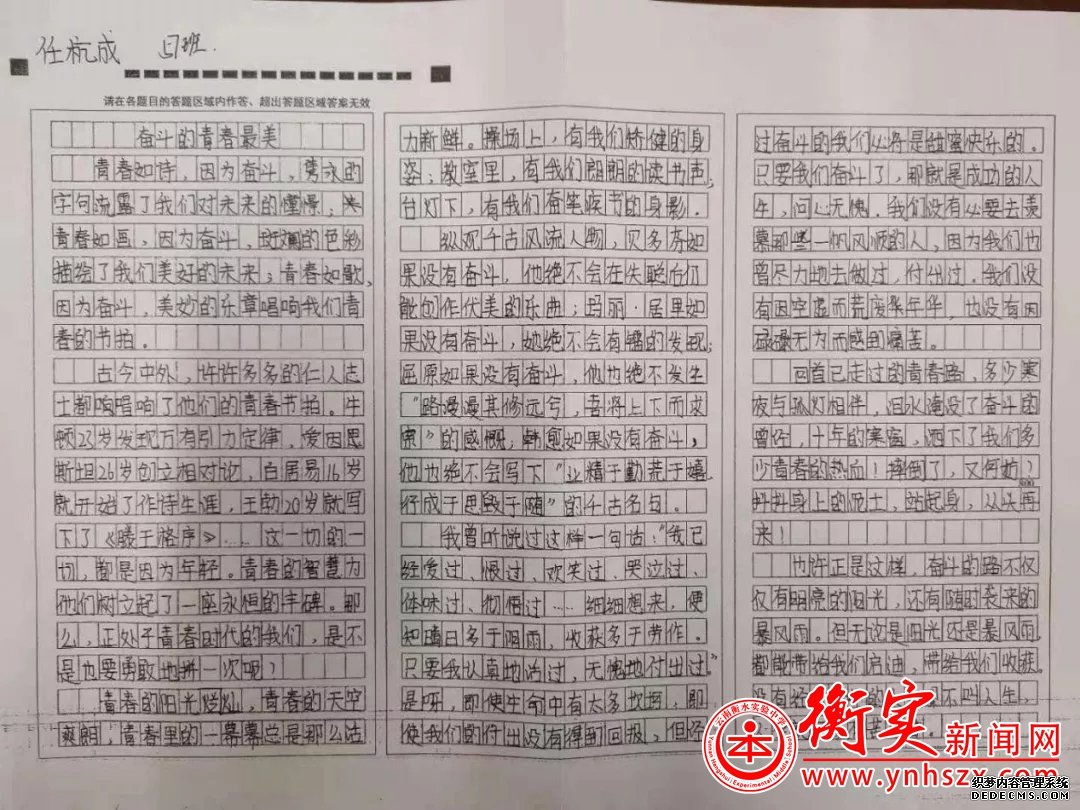 任杭成 班.
请在各题目的答题区域内作答、超出答题区域答案无效
奋斗的青春最美
青春如诗，因为奋斗，隽永的
字句流露了我们对未来的憧憬；
青春如画，因为奋斗，斑斓的色彩
描绘了我们美好的未来；青春如歌，
因为奋斗，美妙的乐章唱响我们青
春的节拍。
古今中外，许许多多的仁人志
士都唱响了他们的青春节拍。牛
顿23岁发现万有引力定律，爱因思
斯坦26岁创立相对论，白居易16岁
就开始了作诗生涯，王勃20岁就写
下了《滕王洛序》……这一切的一
切，都是因为年轻。青春的智慧为
他们树立起了一座永恒的丰碑。那
么，正处于青春时代的我们，是不
是也要勇敢地拼一次呢？
青春的阳光灿烂，青春的天空
爽朗，青春里的一幕幕总是那么活
力新鲜。操场上，有我们矫健的身
姿；教室里，有我们朗朗的读书声；
台灯下，有我们奋笔疾书的身影.
纵观千古风流人物，贝多芬如
果没有奋斗，他绝不会在失聪后仍
能创作优美的乐曲；玛丽·居里如
果没有奋斗，她绝不会有镭的发现；
屈原如果没有奋斗，他也绝不发生
“路漫漫其修远兮，吾将上下而求
索”的感慨；韩愈如果没有奋斗，
他也绝不会写下“业精于勤荒于嬉
行成于思毁于随”的千古名句。
我曾听说过这样一句话：“我已
经爱过、恨过、欢笑过、哭泣过、
体味过、彻悟过……细细想来，便
知晴日多于阴雨，收获多于劳作。
只要我认真地活过，无愧地付出过”
是呀，即使生命中有太多坎坷，即
使我们的付出没有得到回报，但经
过奋斗的我们必将是甜蜜快乐的。
只要我们奋斗了，那就是成功的人
生，问心无愧．我们没有必要去羡
慕那些一帆风顺的人，因为我们也
曾尽力地去做过，付出过．我们没
有因空虚而荒废年华，也没有因
碌碌无为而感到痛苦。
回首已走过的青春路，多少寒
夜与孤灯相伴，泪水淹没了奋斗的
曾经，十年的寒窗，洒下了我们多
少青春的热血！摔倒了，又何妨？
800
抖抖身上的泥土，站起身，从头再
来！
也许正是这样，奋斗的路不仅
仅有明亮的阳光，还有随时袭来的
暴风雨。但无论是阳光还是暴风雨，
都能带给我们启迪，带给我们收获。
没有经 的 不叫人生，
云南衡水实验中学
Yunnan Hengshui Experimental Middle School
本
衡实新闻网
www.ynhszx.com
织梦内容管理系统
DEDECMS.COM